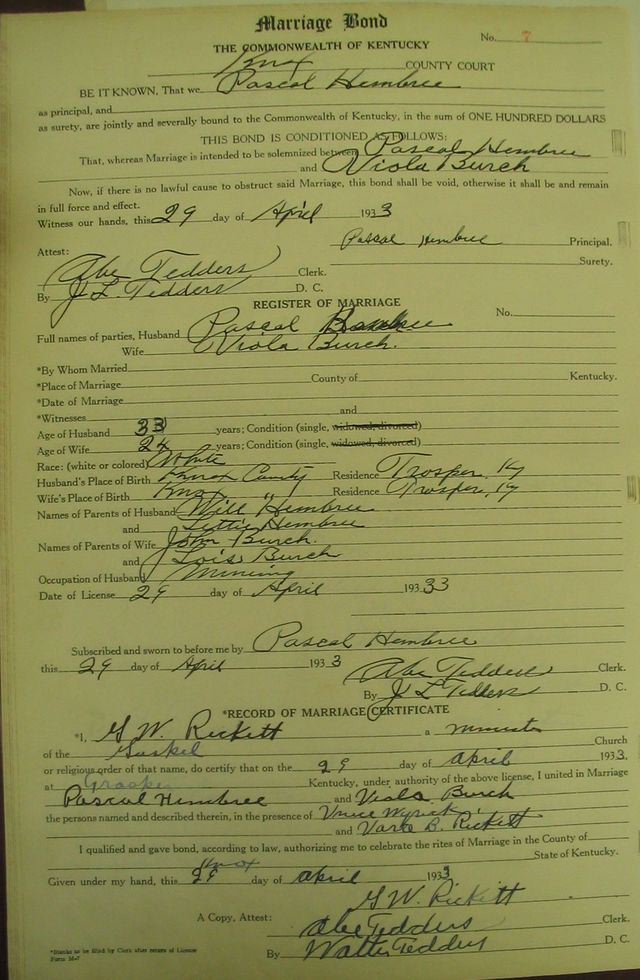 Marriage Bond
No. 7
THE COMMONWEALTH OF KENTUCKY
Knox COUNTY COURT
BE IT KNOWN, That we Pascal Hembree
as principal, and
as surety, are jointly and severally bound to the Commonwealth of Kentucky, in the sum of ONE HUNDRED DOLLARS
THIS BOND IS CONDITIONED AS FOLLOWS:
That, whereas Marriage is intended to be solemnized between Pascal Hembree
and Viola Burch
Now, if there is no lawful cause to obstruct said Marriage, this bond shall be void, otherwise it shall be and remain
in full force and effect.
Witness our hands, this 29 day of April 1933
Pascal Hembree Principal.
Attest: Surety.
Abe Tedders Clerk.
By J. L. Tedders D. C.
REGISTER OF MARRIAGE
No.
Full names of parties, Husband Pascal Hembree
Wife Viola Burch.
*By Whom Married
*Place of Marriage County of Kentucky.
*Date of Marriage
*Witnesses and
Age of Husband 33 years; Condition (single, widowed, divorced)
Age of Wife 24 years; Condition (single, widowed, divorced)
Race: (white or colored) White
Husband's Place of Birth Knox County Residence Trosper, Ky
Wife's Place of Birth Knox " Residence Trosper, Ky
Names of Parents of Husband Will Hembree
and Hembree
Names of Parents of Wife John Burch.
and Lois Burch
Occupation of Husband Mining
Date of License 29 day of April 193 33
Subscribed and sworn to before me by Pascal Hembree
this 29 day of April 1933
Abe Tedders Clerk.
By J L Tedders D. C.
*RECORD OF MARRIAGE CERTIFICATE
*I, G. W. Rickett a minister
of the Church
or religious order of that name, do certify that on the 29 day of April 1933,
at Kentucky, under authority of the above license, I united in Marriage
Pascal Hembree and Viola Burch
the persons named and described therein, in the presence of
and B. Rickett
I qualified and gave bond, according to law, authorizing me to celebrate the rites of Marriage in the County of
Knox State of Kentucky.
Given under my hand, this 29 day of April 1933
G. W. Rickett
A Copy, Attest: Abe Tedders Clerk.
By Walter Tedders D. C.
*Blanks to be filled by Clerk after return of License
Form M-7